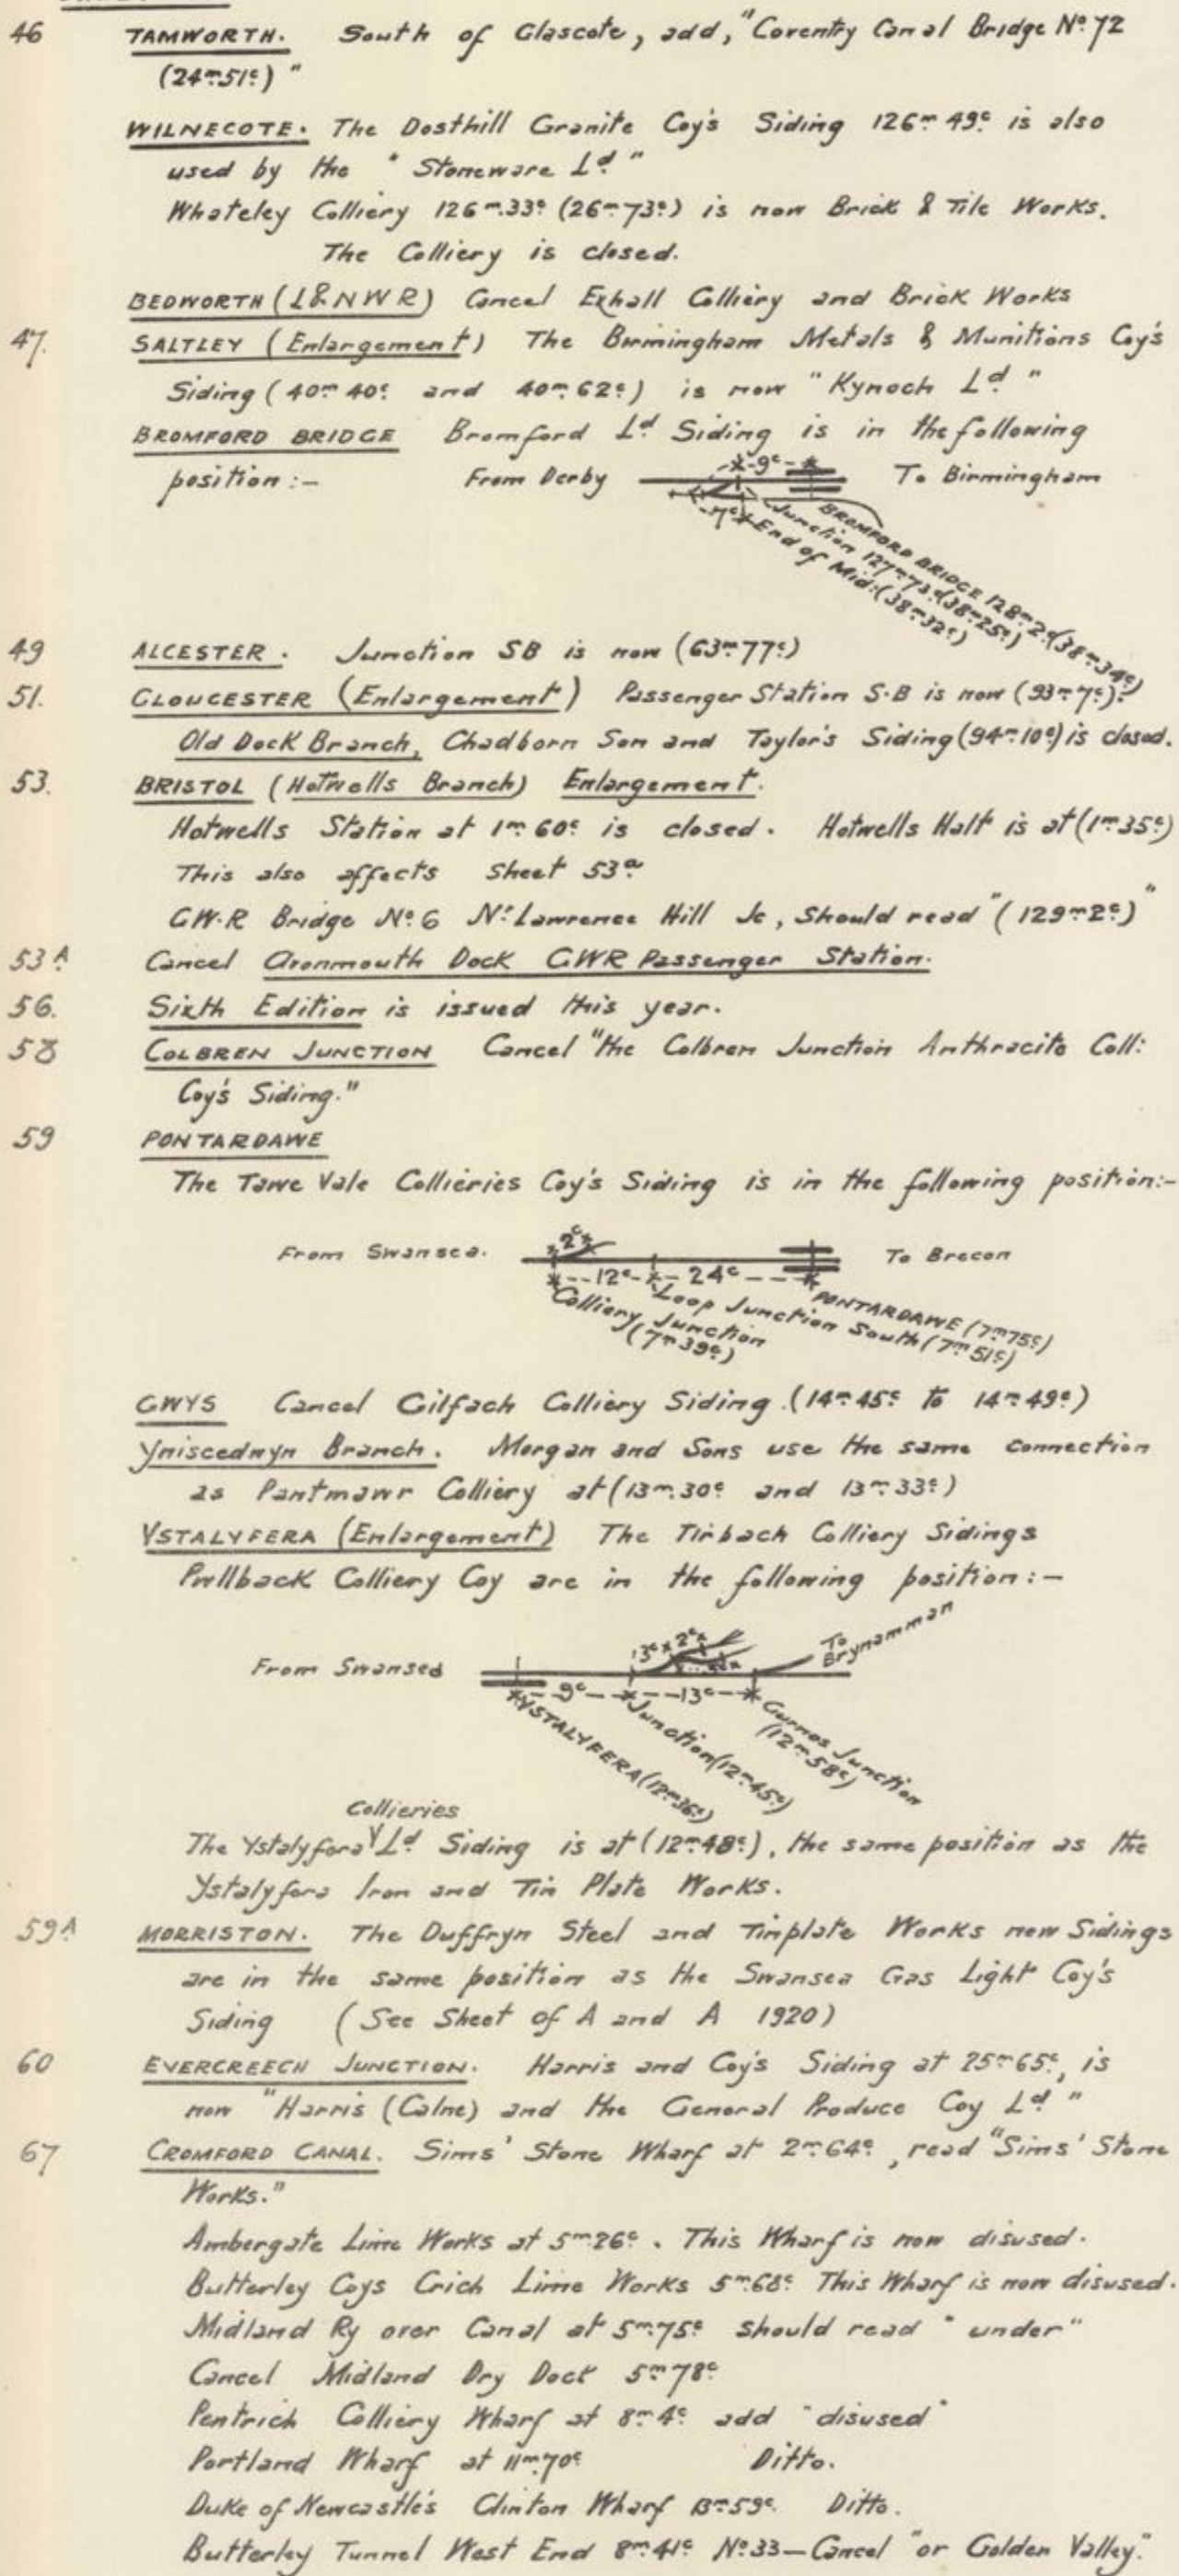 46 TAMWORTH. South of Glascote, add, "Coventry Canal Bridge No. 72
(24m.51c.) "
WILNECOTE. The Dosthill Granite Coy's Siding 126m. 49c. is also
used by the " Stoneware Ld "
Whateley Colliery 126m.33c. (26m.73c.) is now Brick & Tile Works.
The Colliery is closed.
BEDWORTH (L&NWR) Cancel Exhall Colliery and Brick Works
47. SALTLEY (Enlargement) The Birmingham Metals & Munitions Coy's
Siding (40m. 40c. and 40m. 62c.) is now "Kynoch Ld "
BROMFORD BRIDGE Bromford Ld Siding is in the following
position:- From Derby To Birmingham
9c
7c
BROMFORD BRIDGE 128m.2c.(38m.34c.)
Junction 127m.73c.(38m.25c.)
End of Mid:(38m.32c.)
49 ALCESTER. Junction SB is now (63m.77c.)
51. GLOUCESTER (Enlargement) Passenger Station S.B is now (93m.7c.).
Old Dock Branch, Chadborn Son and Taylor's Siding (94m.10c.) is closed.
53. BRISTOL (Hotwells Branch) Enlargement.
Hotwells Station at 1m. 60c. is closed. Hotwells Halt is at (1m.35c.)
This also affects Sheet 53a
G.W.R Bridge No. 6 Nr. Lawrence Hill Jc, Should read "(129m.2c.)"
53A Cancel Avonmouth Dock GWR Passenger Station.
56. Sixth Edition is issued this year.
58 COLBREN JUNCTION Cancel "the Colbren Junction Anthracite Coll:
Coy's Siding."
59 PONTARDAWE
The Tawe Vale Collieries Coy's Siding is in the following position:-
From Swansea. To Brecon
2c
12c 24c
PONTARDAWE (7m.75c.)
Loop Junction South (7m.51c.)
Colliery Junction
(7m.39c.)
GWYS Cancel Gilfach Colliery Siding (14m.45c. to 14m.49c.)
Yniscedwyn Branch. Morgan and Sons use the same connection
as Pantmawr Colliery at (13m.30c. and 13m.33c.)
YSTALYFERA (Enlargement) The Tirbach Colliery Sidings
Pwllback Colliery Coy are in the following position:-
From Swansea To Brynamman
3c 2c
9c 13c
YSTALYFERA (12m.36c.)
Junction (12m.45c.)
Gurnos Junction
(12m.58c.)
Collieries
The Ystalyfera Ld Siding is at (12m.48c.), the same position as the
Ystalyfera Iron and Tin Plate Works.
59A MORRISTON. The Duffryn Steel and Tinplate Works new Sidings
are in the same position as the Swansea Gas Light Coy's
Siding (See Sheet of A and A 1920)
60 EVERCREECH JUNCTION. Harris and Coy's Siding at 25m.65c., is
now "Harris (Calne) and the General Produce Coy Ld "
67 CROMFORD CANAL. Sims' Stone Wharf at 2m.64c., read "Sims' Stone
Works."
Ambergate Lime Works at 5m.26c. This Wharf is now disused.
Butterley Coys Crich Lime Works 5m.68c. This Wharf is now disused.
Midland Ry over Canal at 5m.75c. should read "under"
Cancel Midland Dry Dock 5m.78c
Pentrich Colliery Wharf at 8m.4c. add "disused"
Portland Wharf at 11m.70c Ditto.
Duke of Newcastle's Clinton Wharf 13m.59c. Ditto.
Butterley Tunnel West End 8m.41c No. 33—Cancel "or Golden Valley."